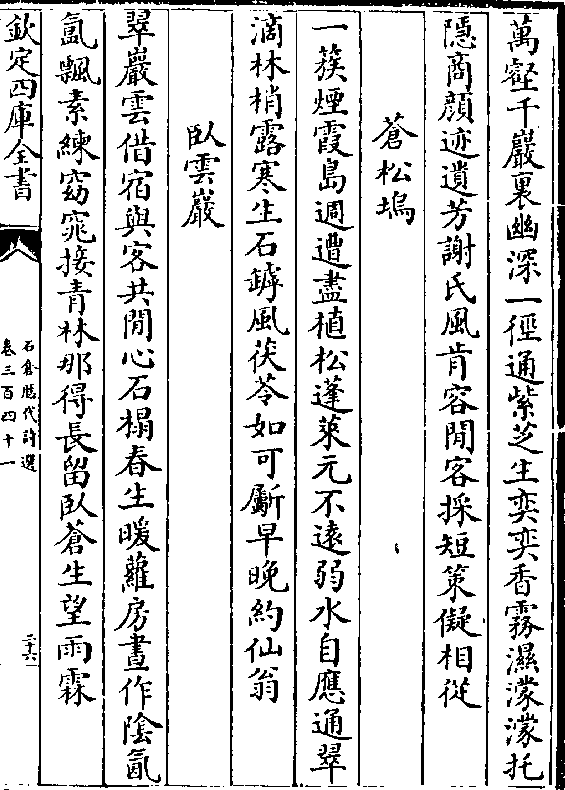 萬壑千巖裏幽深一徑通紫芝生奕奕香霧濕濛濛托
隱商顏迹遺芳謝氏風肯容閒客採短策儗相從
蒼松塢
一簇煙霞島週遭盡植松蓬萊元不遠弱水自應通翠
滴林梢露寒生石罅風茯苓如可斸早晚約仙翁
臥雲巖
翠巖雲借宿與客共閒心石榻春生暖蘿房晝作陰氤
氳飄素練窈窕接青林那得長留臥蒼生望雨霖
欽定四庫全書
石倉歷代詩選
卷三百四十一
二十六